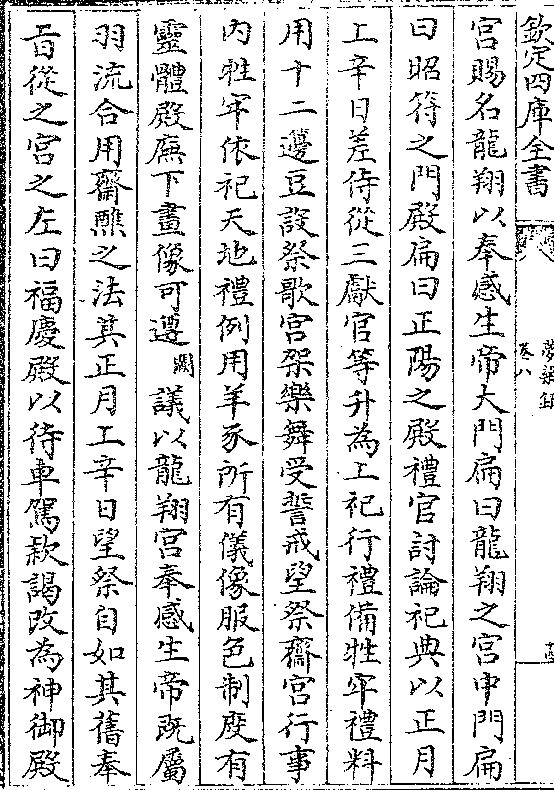 欽定四庫全書
夢粱錄
卷八
宮賜名龍翔以奉感生帝大門扁曰龍翔之宮中門扁
曰昭符之門殿扁曰正陽之殿禮官討論祀典以正月
上辛日差侍從三獻官等升為上祀行禮備牲牢禮料
用十二籩豆設祭歌宮架樂舞受誓戒望祭齋宮行事
內牲牢依祀天地禮例用羊豕所有儀像服色制度有
靈體殿廡下畫像可遵闕議以龍翔宮奉感生帝既屬
羽流合用齋醮之法其正月上辛日望祭自如其舊奉
旨從之宮之左曰福慶殿以待車駕款謁改為神御殿